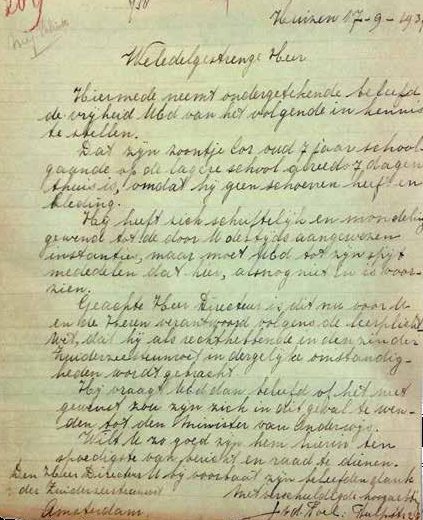 Huizen 17-9-193
Weledelgestrenge Heer
Hiermede neemt ondergetekende beleefd
de vryheid Ubd van het volgende in kennis
te stellen.
Dat zyn zoontje Cor oud 7 jaar school
gaande op de lagere school reeds 7 dagen
thuis is, omdat hy geen schoenen heeft en
kleding.
Hy heeft zich schriftelijk en mondeling
gewend tot de door U destyds aangewezen
instanties, maar moet Ubd tot zyn spyt
mededelen dat hier, alsnog niet in is voor-
zien.
Geachte Heer Directeur is dit nu voor U
en die Heren verantwoord volgens de leerplicht
wet, dat hy als rechthebbende in den zin der
Zuiderzeesteunwet in dergelyke omstandig-
heden wordt gebracht
Hy vraagt Ubd dan beleefd of het niet
gewenst zou zyn zich in dit geval te wen-
den tot den Minister van Onderwys.
Wilt U zo goed zyn hem hierin ten
spoedigste van bericht en raad te dienen.
Den Heer Directeur U by voorbaat zyn beleefden dank
der Zuiderzeesteunwet Met verschuldigde hoogacht
Amsterdam